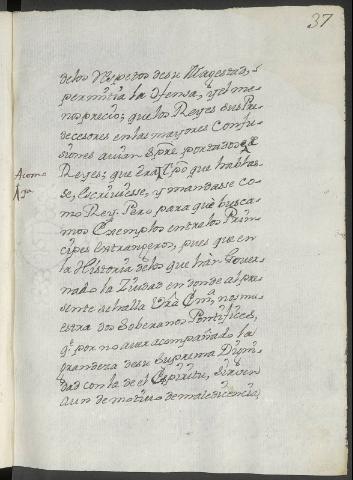 37
de los Respetos de su Magestad, y
permitia la ofensa, y el me-
nosprecio; que los Reyes sus Pre-
decesores en las mayores confu-
siones avian spre. portadose
Reyes; que era tpo. que hablas-
se, escriviesse, y mandasse co-
mo Rey. Pero para què busca-
mos Exemplos entre los Prin-
cipes extrangeros, pues que en
la Historia de los que han gover-
nado la Ziudad en donde al pre-
sente se halla Vra. Em. nos mu-
estra dos Soberanos Pontifices,
q.e por no aver acompañado la
grandeza de su Suprema Digni-
dad con la de el Espiritu, sirven
aun de motivo de maledicencia,